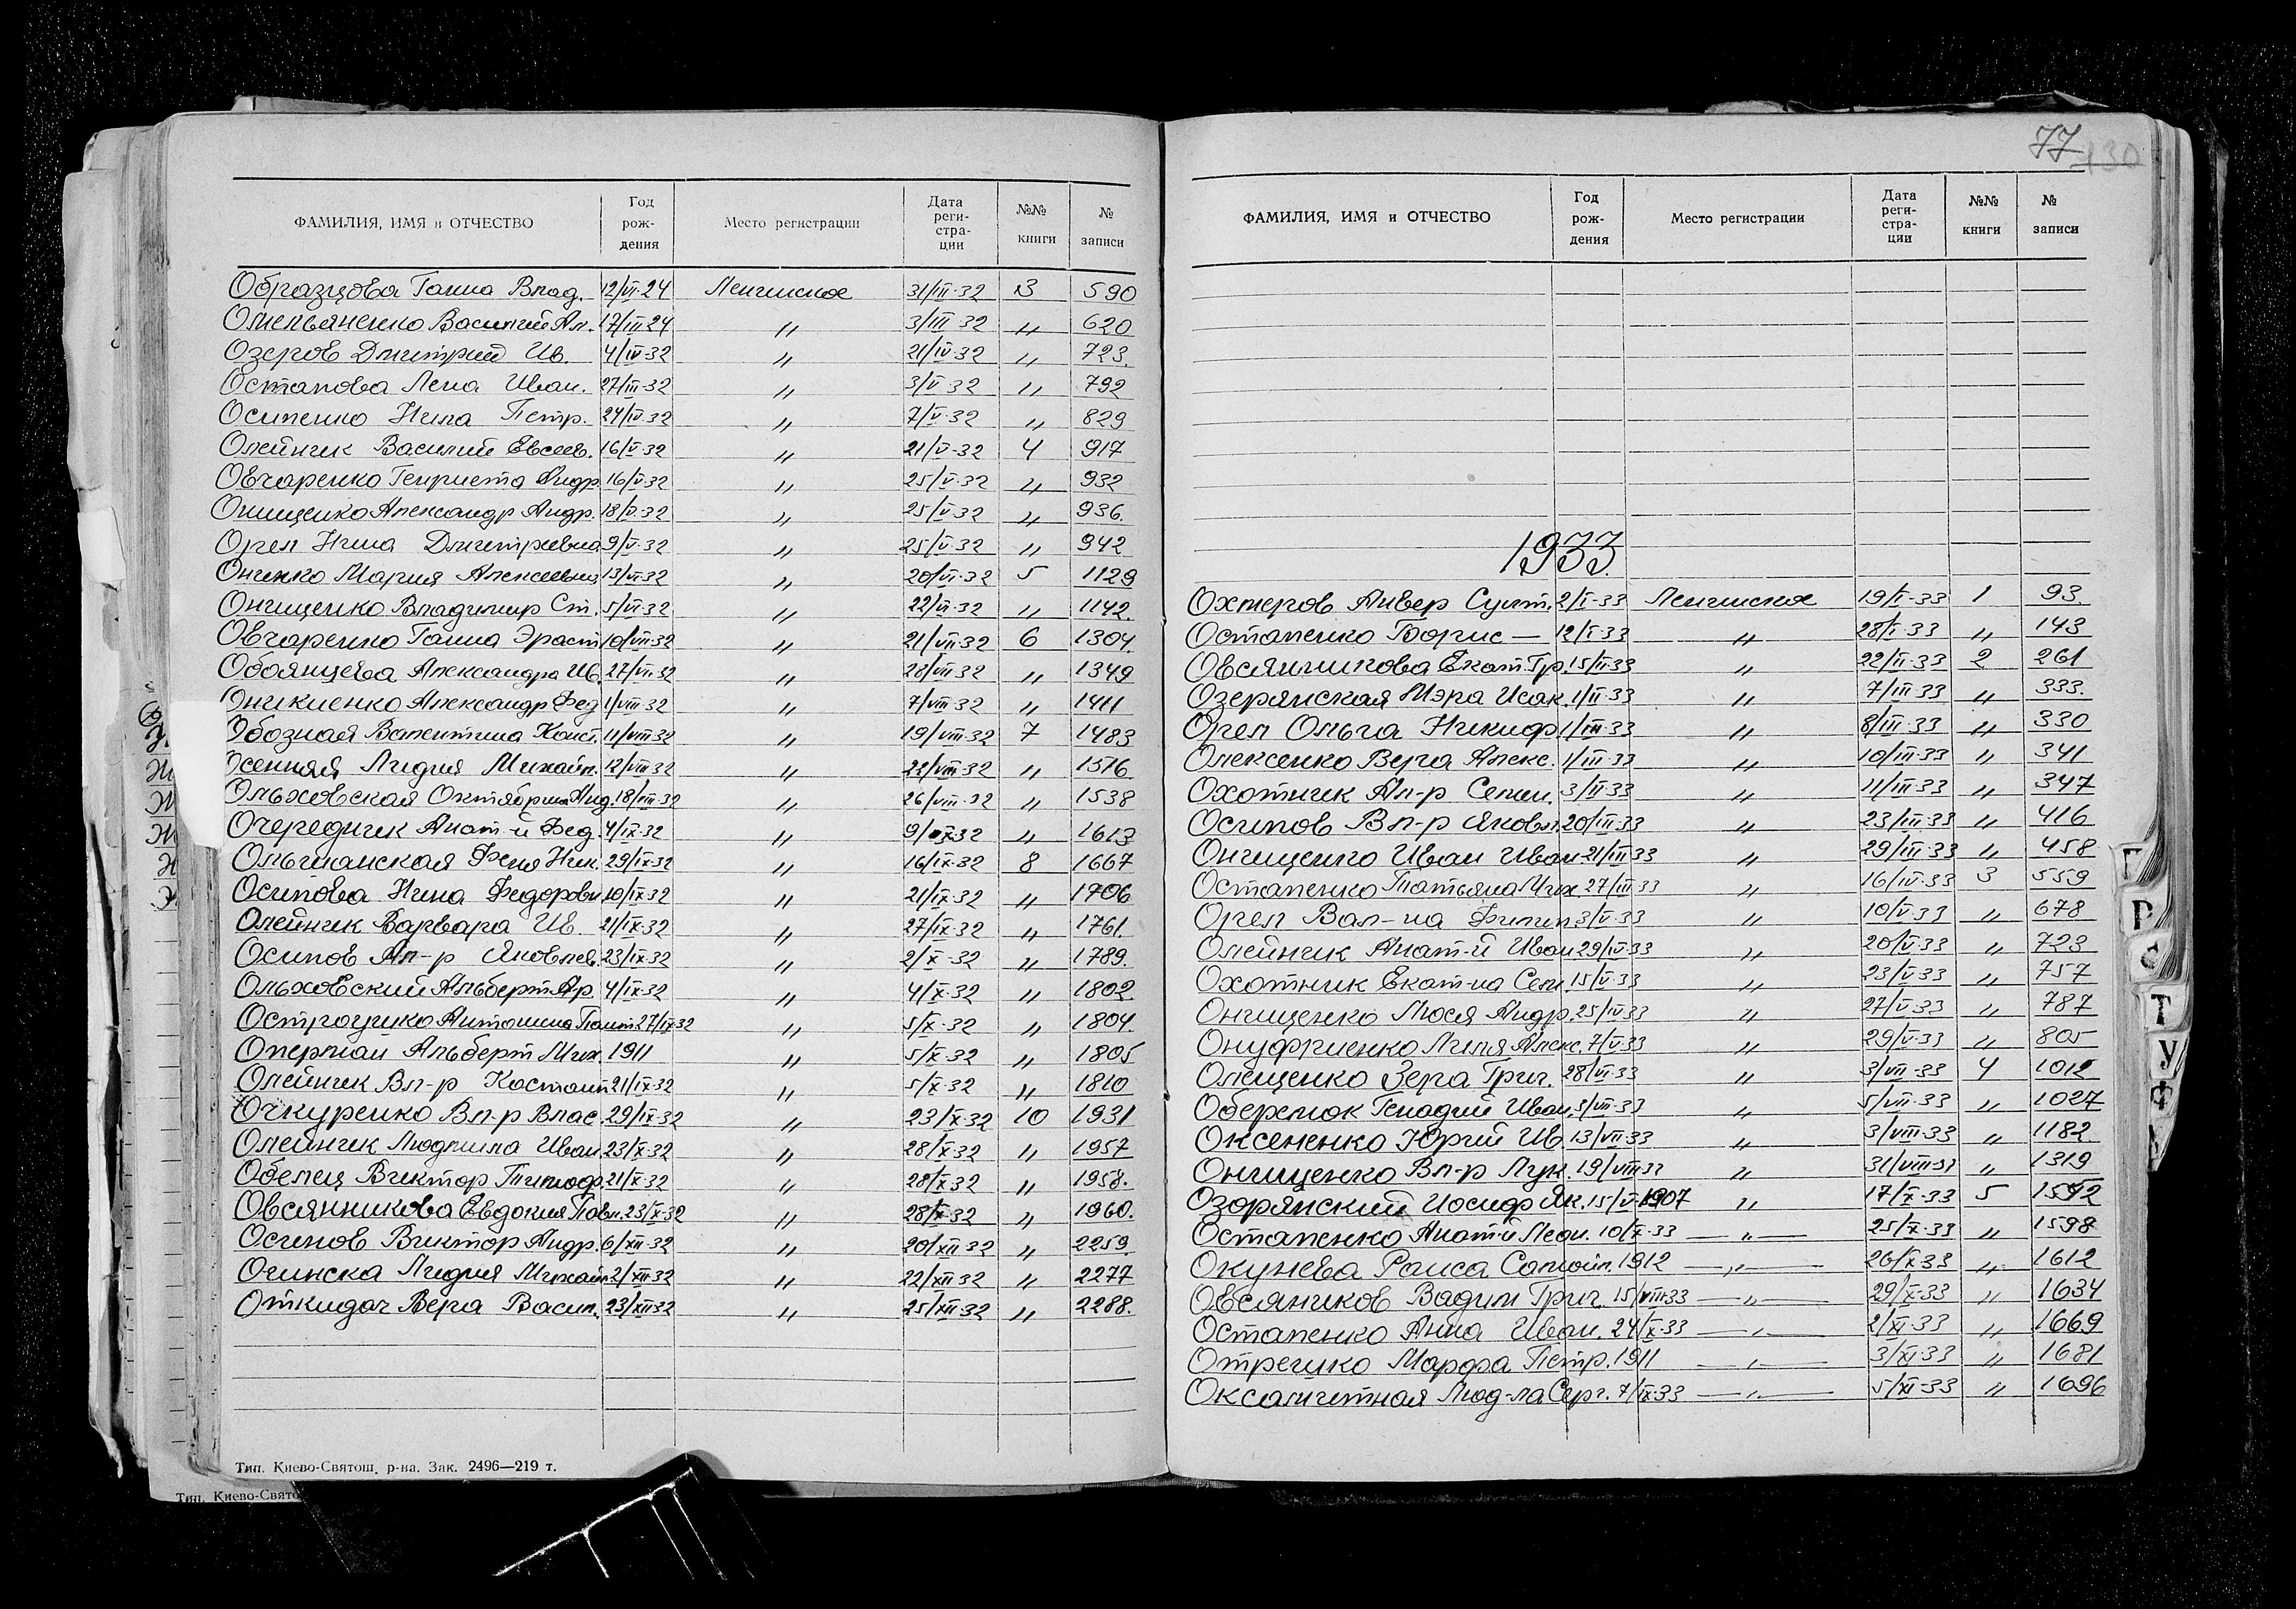 ФАМИЛИЯ, ИМЯ и ОТЧЕСТВО Год рож- дения Место регистрации Дата реги- стра- ции №№ книги № записи
Образцова Ганна Влад. 12/VI-24 Ленинское 31/III-32 3 590
Омельяненко Василий Ал. 17/III 24 〃 3/III 32 〃 620
Озеров Дмитрий Ив. 4/IV-32 〃 21/IV-32 〃 723
Остапова Лена Иван. 27/III-32 〃 3/V-32 〃 792
Осипенко Нила Петр. 24/IV-32 〃 7/V-32 〃 829
Олейник Василий Евсеев. 16/V-32 〃 21/V-32 4 917
Овчаренко Генриета Андр 16/V-32 〃 25/V-32 〃 932
Онищенко Александр Андр. 18/V-32 〃 25/V-32 〃 936.
Орел Нина Дмитриевна 9/V-32 〃 25/V-32 〃 942
Оненко Мария Алексеевна 13/VI-32 〃 20/VI-32 5 1129
Онищенко Владимир Ст. 5/VI-32 〃 22/VI-32 〃 1142.
Овчаренко Ганна Эраст 10/VII-32 〃 21/VII-32 6 1304.
Обоянцева Александра Ив. 27/VI-32 〃 28/VII 32 〃 1349
Оникиенко Александр Фед 1/VIII-32 〃 7/VIII-32 〃 1411
Обозная Валентина Конст. 11/VIII 32 〃 19/VIII-32 7 1483
Осенняя Лидия Михайл. 12/VIII 32 〃 22/VIII-32 〃 1516
Ольховская Октябрина Анд. 18/VIII-32 〃 26/VIII-32 〃 1538
Очередник Анат-й Фед. 4/IX-32 〃 9/IX32 〃 1613
Ольшанская Феня Ник. 29/IX-32 〃 16/IX-32 8 1667
Осипова Нина Федоровн 10/IX-32 〃 21/IX-32 〃 1706
Олейник Варвара Ив. 21/IX-32 〃 27/IX-32 〃 1761.
Осипов Ал-р Яковлев. 23/IX-32 〃 2/X-32 〃 1789.
Ольховский Альберт Яр. 4/IX-32 〃 4/X-32 〃 1802.
Острошко Антонина 27/IX-32 〃 5/X-32 〃 1804.
Оперман Альберт Мих. 1911 〃 5/X-32 〃 1805
Олейник Вл-р Костант 21/IX-32 〃 5/X-32 〃 1810
Очкуренко Вл-р Влас. 29/IX-32 〃 23/X-32 10 1931
Олейник Людмила Иван. 23/X-32 〃 28/X-32 〃 1957
Обелец Виктор Тимоф. 21/X-32 〃 28/X-32 〃 1958.
Овсянникова Евдокия Павл. 23/X-32 〃 28/X-32 〃 1960.
Осипов Виктор Андр. 6/XII-32 〃 20/XII 32 〃 2259.
Огинска Лидия Михайл 2/XII 32 〃 22/XII 32 〃 2277
Откидач Вера Васил. 23/XII 32 〃 25/XII-32 〃 2288.
Тип. Киево-Святош. р-на. Зак. 2496—219 т.
Тип. Киево-Свято
77
130
ФАМИЛИЯ, ИМЯ и ОТЧЕСТВО Год рож- дения Место регистрации Дата реги- стра- ции №№ книги № записи
1933.
Охмеров Анвер Султ. 2/I-33 Ленинское 19/I-33 1 93.
Остапенко Борис — 12/I-33 〃 28/I-33 〃 143
Овсянникова Екат. Гр. 15/II-33 〃 22/II-33 2 261
Озерянская Мэра Исак. 1/II-33 〃 7/III 33 〃 333.
Орел Ольга Никиф. 1/III-33 〃 8/III-33 〃 330
Олексенко Вера Алекс. 1/III-33 〃 10/III-33 〃 341
Охотник Ал-р Семен. 3/II-33 〃 11/III-33 〃 347
Осипов Вл-р Яковл. 20/III-33 〃 23/III-33 〃 416
Онищенко Иван Иван 21/III 33 〃 29/III-33 〃 458
Остапенко Татьяна Мих. 27/III-33 〃 16/IV-33 3 559
Орел Вал-на Филип 3/V-33 〃 10/V-33 〃 678
Олейник Анат-й Иван 29/IV-33 〃 20/V-33 〃 723
Охотник Екат-на Сем 15/V-33 〃 23/V-33 〃 757
Онищенко Люся Андр. 25/IV-33 〃 27/V-33 〃 787
Онуфриенко Лиля Алекс. 7/V-33 〃 29/V-33 〃 805
Олещенко Вера Григ. 28/VI-33 〃 3/VII-33 4 1012
Оберемок Генадий Иван. 3/VII-33 〃 5/VII-33 〃 1027
Оксененко Юрий Ив. 13/VII-33 〃 3/VIII-33 〃 1182
Онищенко Вл-р Лук. 19/VIII 33 〃 31/VIII-33 〃 1319
Озорянский Иосиф Як. 15/V-1907 〃 17/X-33 5 1592
Остапенко Анат-й Леон. 10/X-33 —〃— 25/X-33 〃 1598
Окунева Раиса Самойл. 1912 —〃— 26/X-33 〃 1612
Овсяников Вадим Григ. 15/VIII-33 —〃— 29/X-33 〃 1634
Остапенко Анна Иван. 24/X-33 —〃— 2/XI-33 〃 1669
Отрешко Марфа Петр. 1911 —〃— 3/XI-33 〃 1681
Оксамитная Люд-ла Серг. 7/IX-33 —〃— 5/XI-33 〃 1696
Г
Р
С
Т
У
Ф